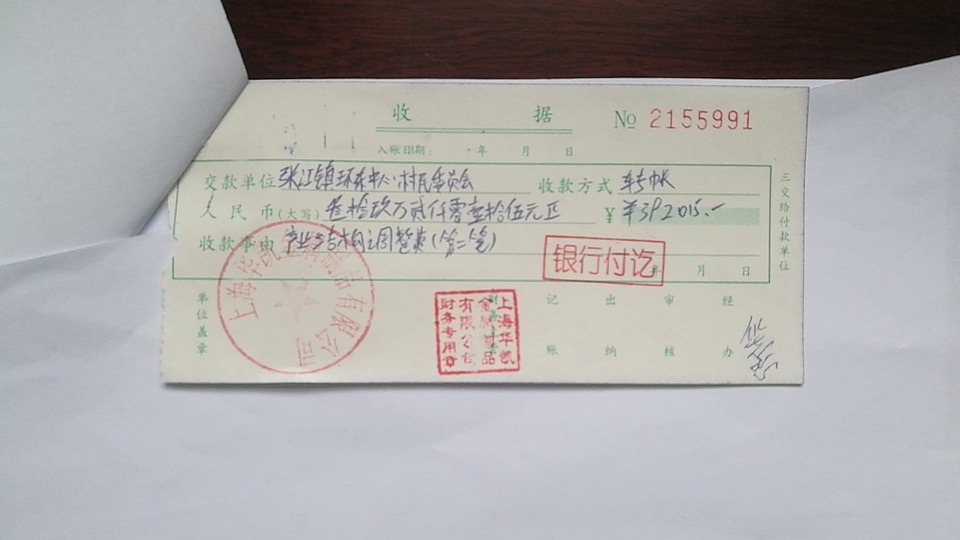 收 据
№ 2155991
入账日期： 年 月 日
交款单位 张江镇环东中心村民委员会 收款方式 转帐
人民币(大写) 叁拾玖万贰仟零壹拾伍元正 ¥ ¥392015.—
收款事由 产业结构调整费(第二笔)
银行付讫
年 月 日
三交给付款单位
单位盖章
记账 出纳 审核 经办
上海华凯金属制品有限公司
上海华凯金属制品有限公司财务专用章